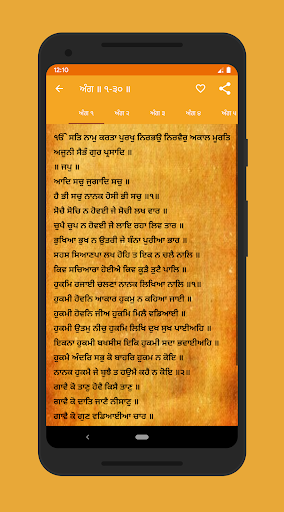 12:10
ਅੰਗ ॥ ੧-੩੦ ॥
ਅੰਗ ੧ ਅੰਗ ੨ ਅੰਗ ੩ ਅੰਗ ੪ ਅੰਗ ੫
ੴ ਸਤਿ ਨਾਮੁ ਕਰਤਾ ਪੁਰਖੁ ਨਿਰਭਉ ਨਿਰਵੈਰੁ ਅਕਾਲ ਮੂਰਤਿ
ਅਜੂਨੀ ਸੈਭੰ ਗੁਰ ਪ੍ਰਸਾਦਿ ॥
॥ ਜਪੁ ॥
ਆਦਿ ਸਚੁ ਜੁਗਾਦਿ ਸਚੁ ॥
ਹੈ ਭੀ ਸਚੁ ਨਾਨਕ ਹੋਸੀ ਭੀ ਸਚੁ ॥੧॥
ਸੋਚੈ ਸੋਚਿ ਨ ਹੋਵਈ ਜੇ ਸੋਚੀ ਲਖ ਵਾਰ ॥
ਚੁਪੈ ਚੁਪ ਨ ਹੋਵਈ ਜੇ ਲਾਇ ਰਹਾ ਲਿਵ ਤਾਰ ॥
ਭੁਖਿਆ ਭੁਖ ਨ ਉਤਰੀ ਜੇ ਬੰਨਾ ਪੁਰੀਆ ਭਾਰ ॥
ਸਹਸ ਸਿਆਣਪਾ ਲਖ ਹੋਹਿ ਤ ਇਕ ਨ ਚਲੈ ਨਾਲਿ ॥
ਕਿਵ ਸਚਿਆਰਾ ਹੋਈਐ ਕਿਵ ਕੂੜੈ ਤੁਟੈ ਪਾਲਿ ॥
ਹੁਕਮਿ ਰਜਾਈ ਚਲਣਾ ਨਾਨਕ ਲਿਖਿਆ ਨਾਲਿ ॥੧॥
ਹੁਕਮੀ ਹੋਵਨਿ ਆਕਾਰ ਹੁਕਮੁ ਨ ਕਹਿਆ ਜਾਈ ॥
ਹੁਕਮੀ ਹੋਵਨਿ ਜੀਅ ਹੁਕਮਿ ਮਿਲੈ ਵਡਿਆਈ ॥
ਹੁਕਮੀ ਉਤਮੁ ਨੀਚੁ ਹੁਕਮਿ ਲਿਖਿ ਦੁਖ ਸੁਖ ਪਾਈਅਹਿ ॥
ਇਕਨਾ ਹੁਕਮੀ ਬਖਸੀਸ ਇਕਿ ਹੁਕਮੀ ਸਦਾ ਭਵਾਈਅਹਿ ॥
ਹੁਕਮੈ ਅੰਦਰਿ ਸਭੁ ਕੋ ਬਾਹਰਿ ਹੁਕਮ ਨ ਕੋਇ ॥
ਨਾਨਕ ਹੁਕਮੈ ਜੇ ਬੁਝੈ ਤ ਹਉਮੈ ਕਹੈ ਨ ਕੋਇ ॥੨॥
ਗਾਵੈ ਕੋ ਤਾਣੁ ਹੋਵੈ ਕਿਸੈ ਤਾਣੁ ॥
ਗਾਵੈ ਕੋ ਦਾਤਿ ਜਾਣੈ ਨੀਸਾਣੁ ॥
ਗਾਵੈ ਕੋ ਗੁਣ ਵਡਿਆਈਆ ਚਾਰ ॥